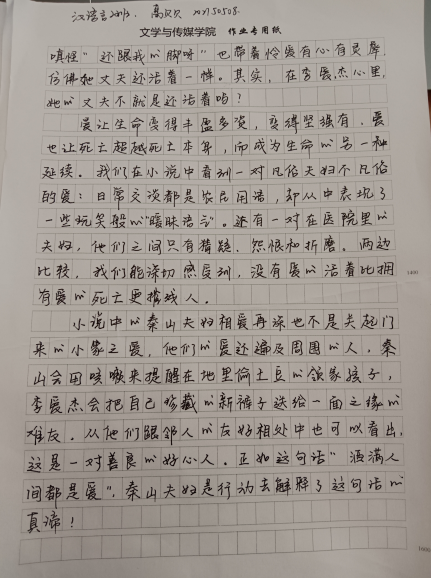 汉语言2103. 高贝贝 202150508.
文学与传媒学院 作业专用纸
嗔怪“还跟我的脚呀”也带着怜爱有心有灵犀,
仿佛她丈夫还活着一样。其实,在李爱杰心里,
她的丈夫不就是还活着吗?
爱让生命变得丰盈多姿,变得坚强有,爱
也让死亡超越死亡本身,而成为生命的另一种
延续。我们在小说中看到一对凡俗夫妇不凡俗
的爱:日常交谈都是农民用语,却从中表现了
一些玩笑般的“暧昧语言”。还有一对在医院里的
夫妇,他们之间只有猜疑、怨恨和折磨。两边
比较,我们能深切感受到,没有爱的活着比拥
有爱的死亡更摧残人。
小说中的秦山夫妇相爱再深也不是关起门
来的小家之爱,他们的爱还遍及周围的人,秦
山会用咳嗽来提醒在地里偷土豆的邻家孩子,
李爱杰会把自己珍藏的新裤子送给一面之缘的
难友。从他们跟邻人的友好相处中也可以看出,
这是一对善良的好心人。正如这句话“洒满人
间都是爱”,秦山夫妇是行动去解释了这句话的
真谛!
1400
1600